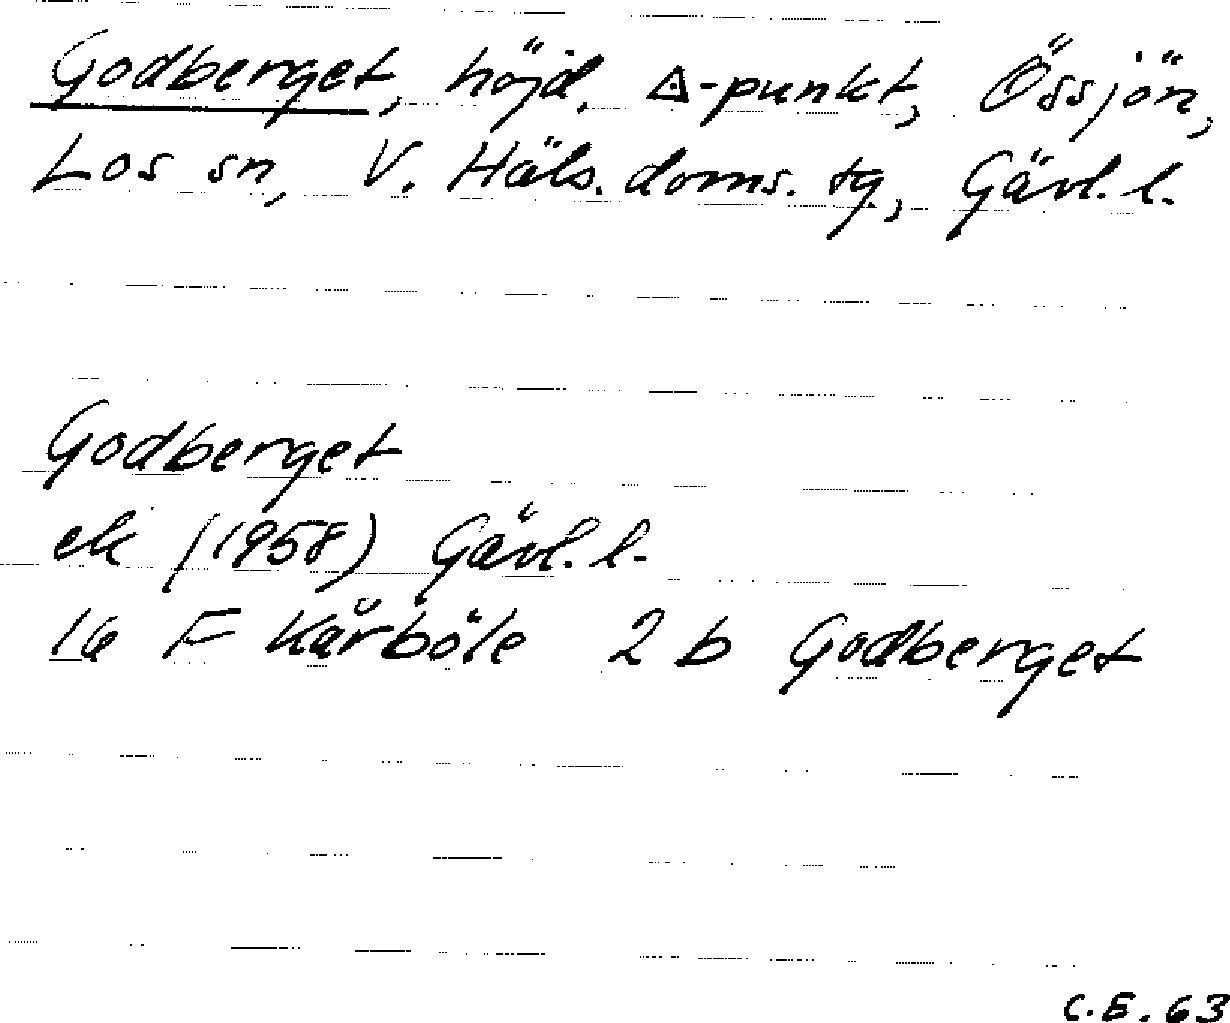 Godberget, höjd, △-punkt, Össjön,
Los sn, V. Häls. doms. tg, Gävl. l.
Godberget
ek (1958) Gävl. l.
16 F Kårböle 2 b Godberget
C.E. 63